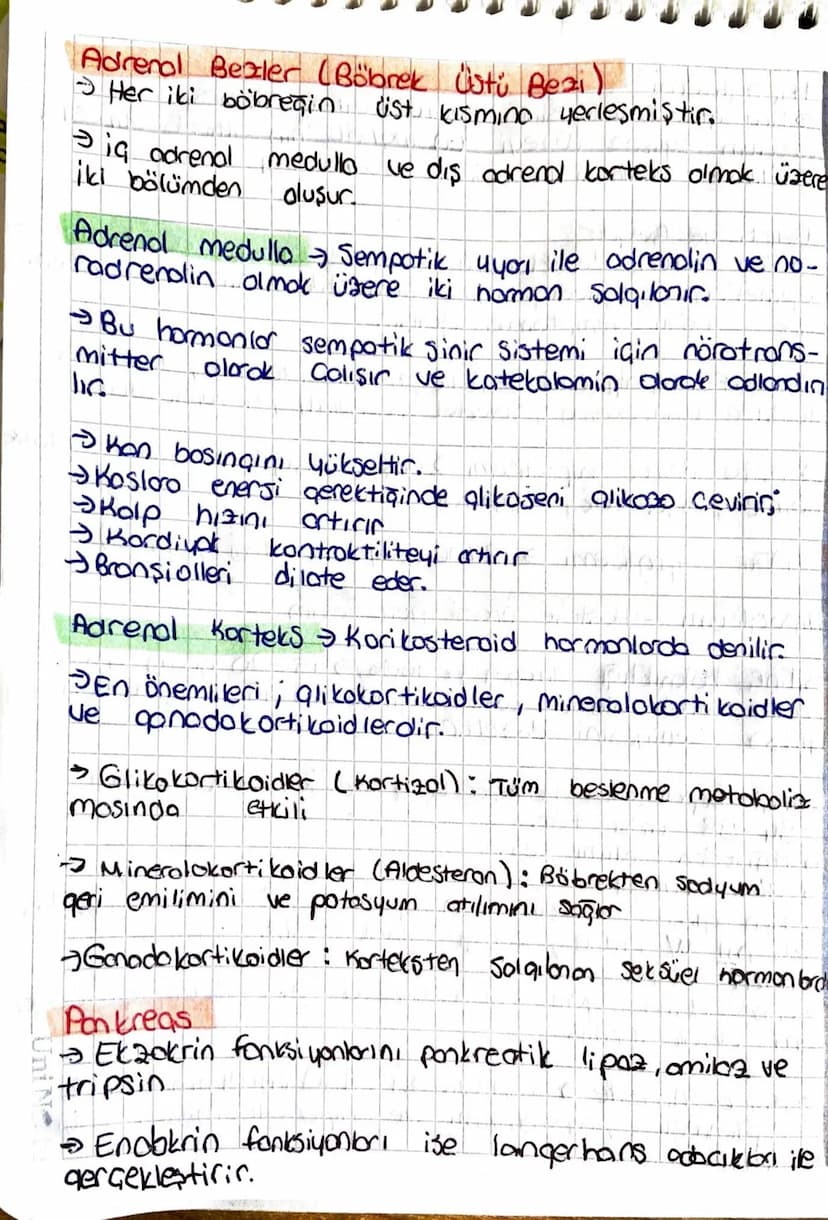 Adrenal Bezler (Böbrek Üstü Bezi)
→ Her iki böbreğin üst kısmına yerleşmiştir.
→ iç adrenal medulla ve dış adrenal korteks olmak üzere
iki bölümden oluşur.
Adrenal medulla → Sempatik uyarı ile adrenalin ve no-
radrenalin olmak üzere iki hormon salgılanır.
→ Bu hormonlar sempatik sinir sistemi için nörotrans-
mitter olarak çalışır ve katekolamin olarak adlandırı
lır.
→ Kan basıncını yükseltir.
→ Kaslara enerji gerektiğinde glikojeni glikoza çevirir;
→ Kalp hızını artırır
→ Kardiyak kontraktiliteyi artırır
→ Bronşiolleri dilate eder.
Adrenal Korteks → Korikosteroid hormonlarda denilir.
→ En önemlileri ; glikokortikoidler , mineralokortikoidler
ve gonadokortikoidlerdir.
→ Glikokortikoidler (Kortizol) : Tüm beslenme metaboliz
masında etkili
→ Mineralokortikoidler (Aldesteron) : Böbrekten sodyum
geri emilimini ve potasyum atılımını sağlar
→ Gonadokortikoidler : Korteksten salgılanan seksüel hormonlard
Pankreas
→ Ekzokrin fonksiyonlarını pankreatik lipaz, amilaz ve
tripsin
→ Endokrin fonksiyonları ise langerhans adacıkları ile
gerçekleştirir.